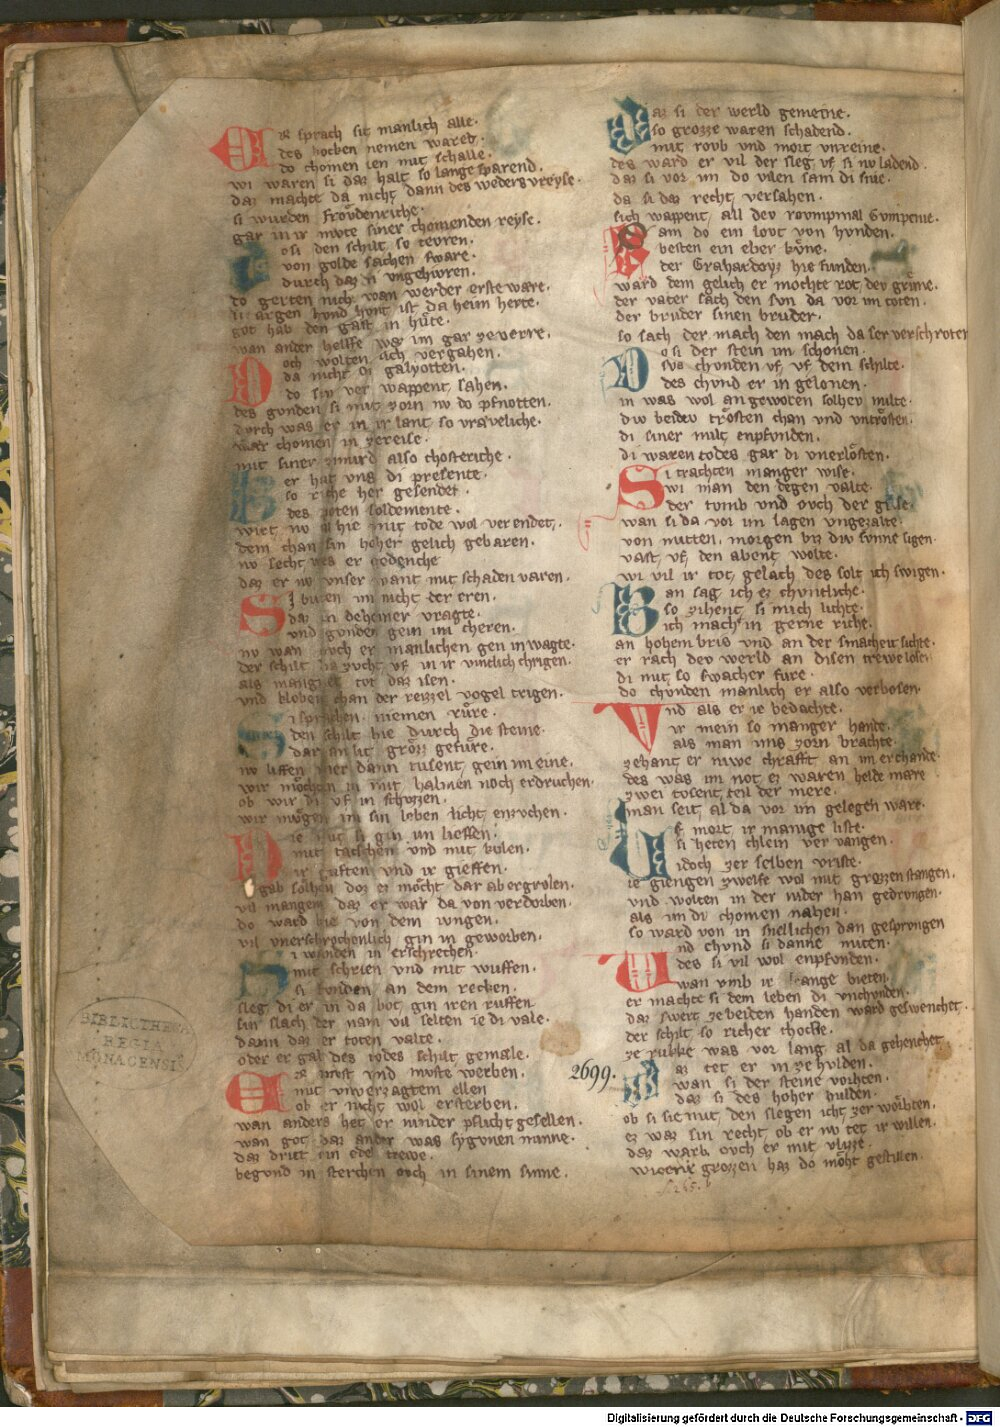 sprach sit manlich alle.
des kocken nemen wares.
do chomen ien mit schalle.
wi waren si daz halt so lange sparend.
daz machte da nicht dann des weders vreyse.
si wurden froͤudenriche.
gar in ir mvte siner chomenden reyse.
o si den schilt so tevren.
von golde sachen sware.
durch daz si vngehivren.
do gerten nicht wan werder erste ware.
hund hivt ist da heim herte.
got hab den gast in huͤte.
wan ander helffe waz im gar ze verre.
och wolten sich vergahen.
da nicht di galyotten.
do sin ver wappent sahen.
des gunden si mit zorn nv do pfnotten.
durch was er in ir lant so vraveliche.
war chomen in zereise.
mit siner zimird also chosteriche.
er hat vns di presente.
so riche her gesendet.
des poten soldemente.
wirt no hie mit tode wol verendet.
dem chan sin hoher gelich gebaren.
nv secht wes er gedenche
daz er nv vnser pant mit schaden varen.
Si buten im nicht der eren.
daz in deheiner vragte.
vnd gunden gein im cheren.
nv wan ovch er manlichen gen in wagte.
der schilt vf in ir
als manger tot daz isen.
vnd kloben chan der reizzel vogel trigen.
Si sprachen niemen ruͤre.
den schilt hie durch die steine.
dar an lit groͤzz gefuͤre.
nv liffen vier dann tusent gein im eine.
wir moͤchten in mit halmen noch erdruchen.
ob wir di vf in schuzzen.
wir moͤgen im sin leben licht enzvchen.
Die mit si gin im lieffen.
mit tatschen vnd mit kvlen.
ir guften vnd ir gieffen.
gab solhen doz ez moͤcht dar ab ergrolen.
vil mangem daz er wart da von verdorben.
do ward hie von dem ivngen.
vil vnerschrochenlich gin in geworben.
Si wanden in erschrechen.
mit schrien vnd mit wuffen.
si gunden an dem rechen.
sleg di er in da bot gin iren ruffen
sin slach der nam vil selten ie di vale.
dann daz er toten valte.
oder er gab des todes schilt gemale.
Er most vnd muste werben.
mit vnverzagtem ellen
ob er nicht wol ersterben.
wan anders het er ninder pflicht gesellen.
wan got daz ander was sygvnen minne.
daz dritt ein edel trewe.
begvnd in sterchen ovch in sinem sinne.
Daz si der werld gemeine.
so grozze waren schadend.
mit rovb vnd mort vnreine.
des ward er vil der sleg vf si nv ladend.
daz si vor im do vilen sam di snie.
da si daz recht versahen.
sich wappent all dev rovmpinal
Sam do ein lovt von hvnden.
besten ein eber kuͤne.
der Grahardoyz hie funden.
ward dem gelich er mochte rot dev gruͤne.
der vater sach den svn da vor im toten.
der bruder sinen bruder.
so sach der mach den mach da ser verschroten
Do si der stein im schonen.
sus chvnden vf vf dem schilte.
des chvnd er in gelonen.
in was wol angeworen solhev milte.
div beidev troͤsten chan vnd vntroͤsten.
di siner milt enpfunden.
di waren todes gar di vnerloͤsten.
Si trachten manger wise.
wi man den degen valte.
der tvmb vnd ovch der grise.
wan si da vor im lagen vngezalte.
von mitten morgen biz div svnne sigen.
vast vf den abent wolte.
wi vil ir tot gelach des solt ich swigen.
Wan sag ich ez chvntliche.
so zihent si mich lichte.
ich mach in gerne riche.
an hohem bris vnd an der smacheit sichte.
er rach dev werld an disen trewe losen
di mit so swacher fure.
do chvnden manlich er also verbosen.
Vnd als er ie bedachte.
ir mein so manger hande.
als man ims zorn brachte.
zehant er niwe chrafft an im erchande.
des was im not ez waren helde mare
zwei tosent teil der mere.
man seit al da vor im gelegen ware.
Vf mort ir manige liste.
si heten chlein vervangen.
idoch zer selben vriste.
ie giengen zwelfe wol mit grozzen stangen.
vnd wolten in der nider han gedrongen.
als im di chomen nahen.
so ward von in snellichen dan gesprvngen
Vnd chvnd si danne miten.
des si vil wol enpfunden.
wan vmb ir stange bieten.
er machte si dem leben di vnchvnden.
daz swert ze beiden handen ward geswenchet.
der schilt so richer choste.
ze rukke was vor lang al da gehenchet
2699.
Daz tet er in ze hvlden.
wan si der steine vorhten.
daz si des hoher dulden.
ob si sie mit den slegen icht zer worhten.
ez waz sin recht ob er nv tet ir willen.
daz warb ovch er mit vlizze.
grozzen haz do moͤht gestillen.
BIBLIOTHECA
REGIA
MONACENSIS
Digitalisierung gefördert durch die Deutsche Forschungsgemeinschaft - DFG